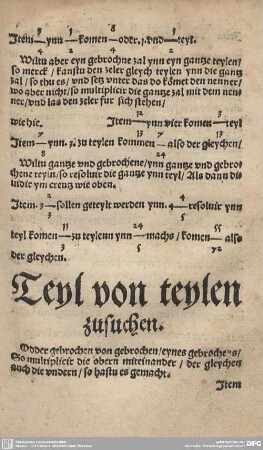 7 1 8
Item — ynn — komen — oder.1.vnd — teyl.
4 2 4 2
Wiltu aber eyn gebrochne zal ynn eyn gantze teylen/
so merck / kanstu den zeler gleych teylen ynn die gantz
zal / so thu es / vnd setz vnter das do kömet den nenner/
wo aber nicht / so multiplicir die gantze zal mit dem nen-
ner/vnd las den zeler fur sich stehen/
wie hie. Item — ynn vier komen — teyl
Item — ynn. zu teylen kommen — also der gleychen/
Wiltu gantze vnd gebrochene/ynn gantze vnd gebro-
chene teyln/so resoluir die gantze ynn teyl/Als dann di
uidir yn creutz wie oben.
Item. — sollen geteylt werden ynn. 4 — resoluir ynn
11 24 55
teyl komen — zu teylenn ynn — machs/komen — also
3 5 72
der gleychen.
Teyl von teylen
zusuchen.
Odder gebrochen von gebrochen/eynes gebrochens/
So multiplicir die obern miteinander / der gleychen
auch die vndern / so hastu es gemacht.
Item